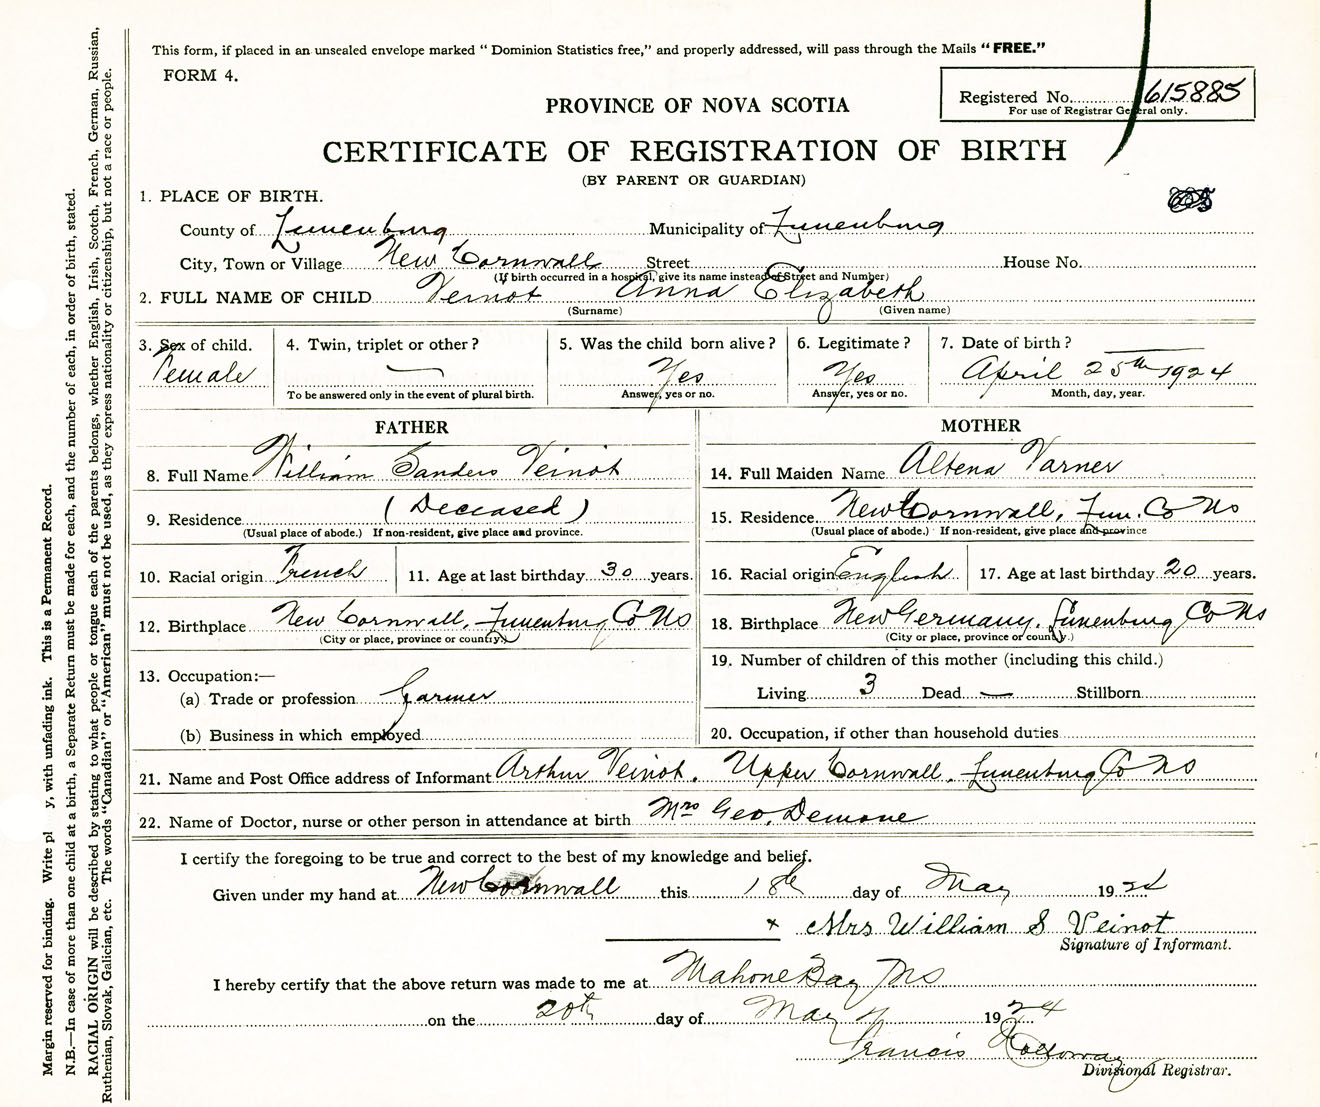 This form, if placed in an unsealed envelope marked “ Dominion Statistics free,” and properly addressed, will pass through the Mails “ FREE.”
FORM 4.
Registered No. 615885
For use of Registrar General only.
PROVINCE OF NOVA SCOTIA
CERTIFICATE OF REGISTRATION OF BIRTH
(BY PARENT OR GUARDIAN)
1. PLACE OF BIRTH.
County of Lunenburg Municipality of Lunenburg
City, Town or Village New Cornwall Street House No.
(If birth occurred in a hospital, give its name instead of Street and Number)
2. FULL NAME OF CHILD Veinot Anna Elizabeth
(Surname) (Given name)
3. Sex of child. 4. Twin, triplet or other ? 5. Was the child born alive ? 6. Legitimate ? 7. Date of birth ?
Female — Yes Yes April 25th 1924
To be answered only in the event of plural birth. Answer, yes or no. Answer, yes or no. Month, day, year.
FATHER
8. Full Name William Sanders Veinot
9. Residence (Deceased)
(Usual place of abode.) If non-resident, give place and province.
10. Racial origin French 11. Age at last birthday 30 years.
12. Birthplace New Cornwall, Lunenburg Co NS
(City or place, province or country.)
13. Occupation:—
(a) Trade or profession Farmer
(b) Business in which employed
MOTHER
14. Full Maiden Name Altena Varner
15. Residence New Cornwall, Lun. Co NS
(Usual place of abode.) If non-resident, give place and province
16. Racial origin English 17. Age at last birthday 20 years.
18. Birthplace New Germany, Lunenburg Co NS
(City or place, province or country.)
19. Number of children of this mother (including this child.)
Living 3 Dead — Stillborn
20. Occupation, if other than household duties
21. Name and Post Office address of Informant Arthur Veinot, Upper Cornwall, Lunenburg Co NS
22. Name of Doctor, nurse or other person in attendance at birth Mrs Geo. Demone
I certify the foregoing to be true and correct to the best of my knowledge and belief.
Given under my hand at New Cornwall this 18th day of May 1924
x Mrs William S Veinot
Signature of Informant.
I hereby certify that the above return was made to me at Mahone Bay NS
on the 20th day of May 1924
Francis
Divisional Registrar.
Margin reserved for binding. Write pl y, with unfading ink. This is a Permanent Record.
N.B.—In case of more than one child at a birth, a Separate Return must be made for each, and the number of each, in order of birth, stated.
RACIAL ORIGIN will be described by stating to what people or tongue each of the parents belongs, whether English, Irish, Scotch, French, German, Russian,
Ruthenian, Slovak, Galician, etc. The words “Canadian” or “American” must not be used, as they express nationality or citizenship, but not a race or people.